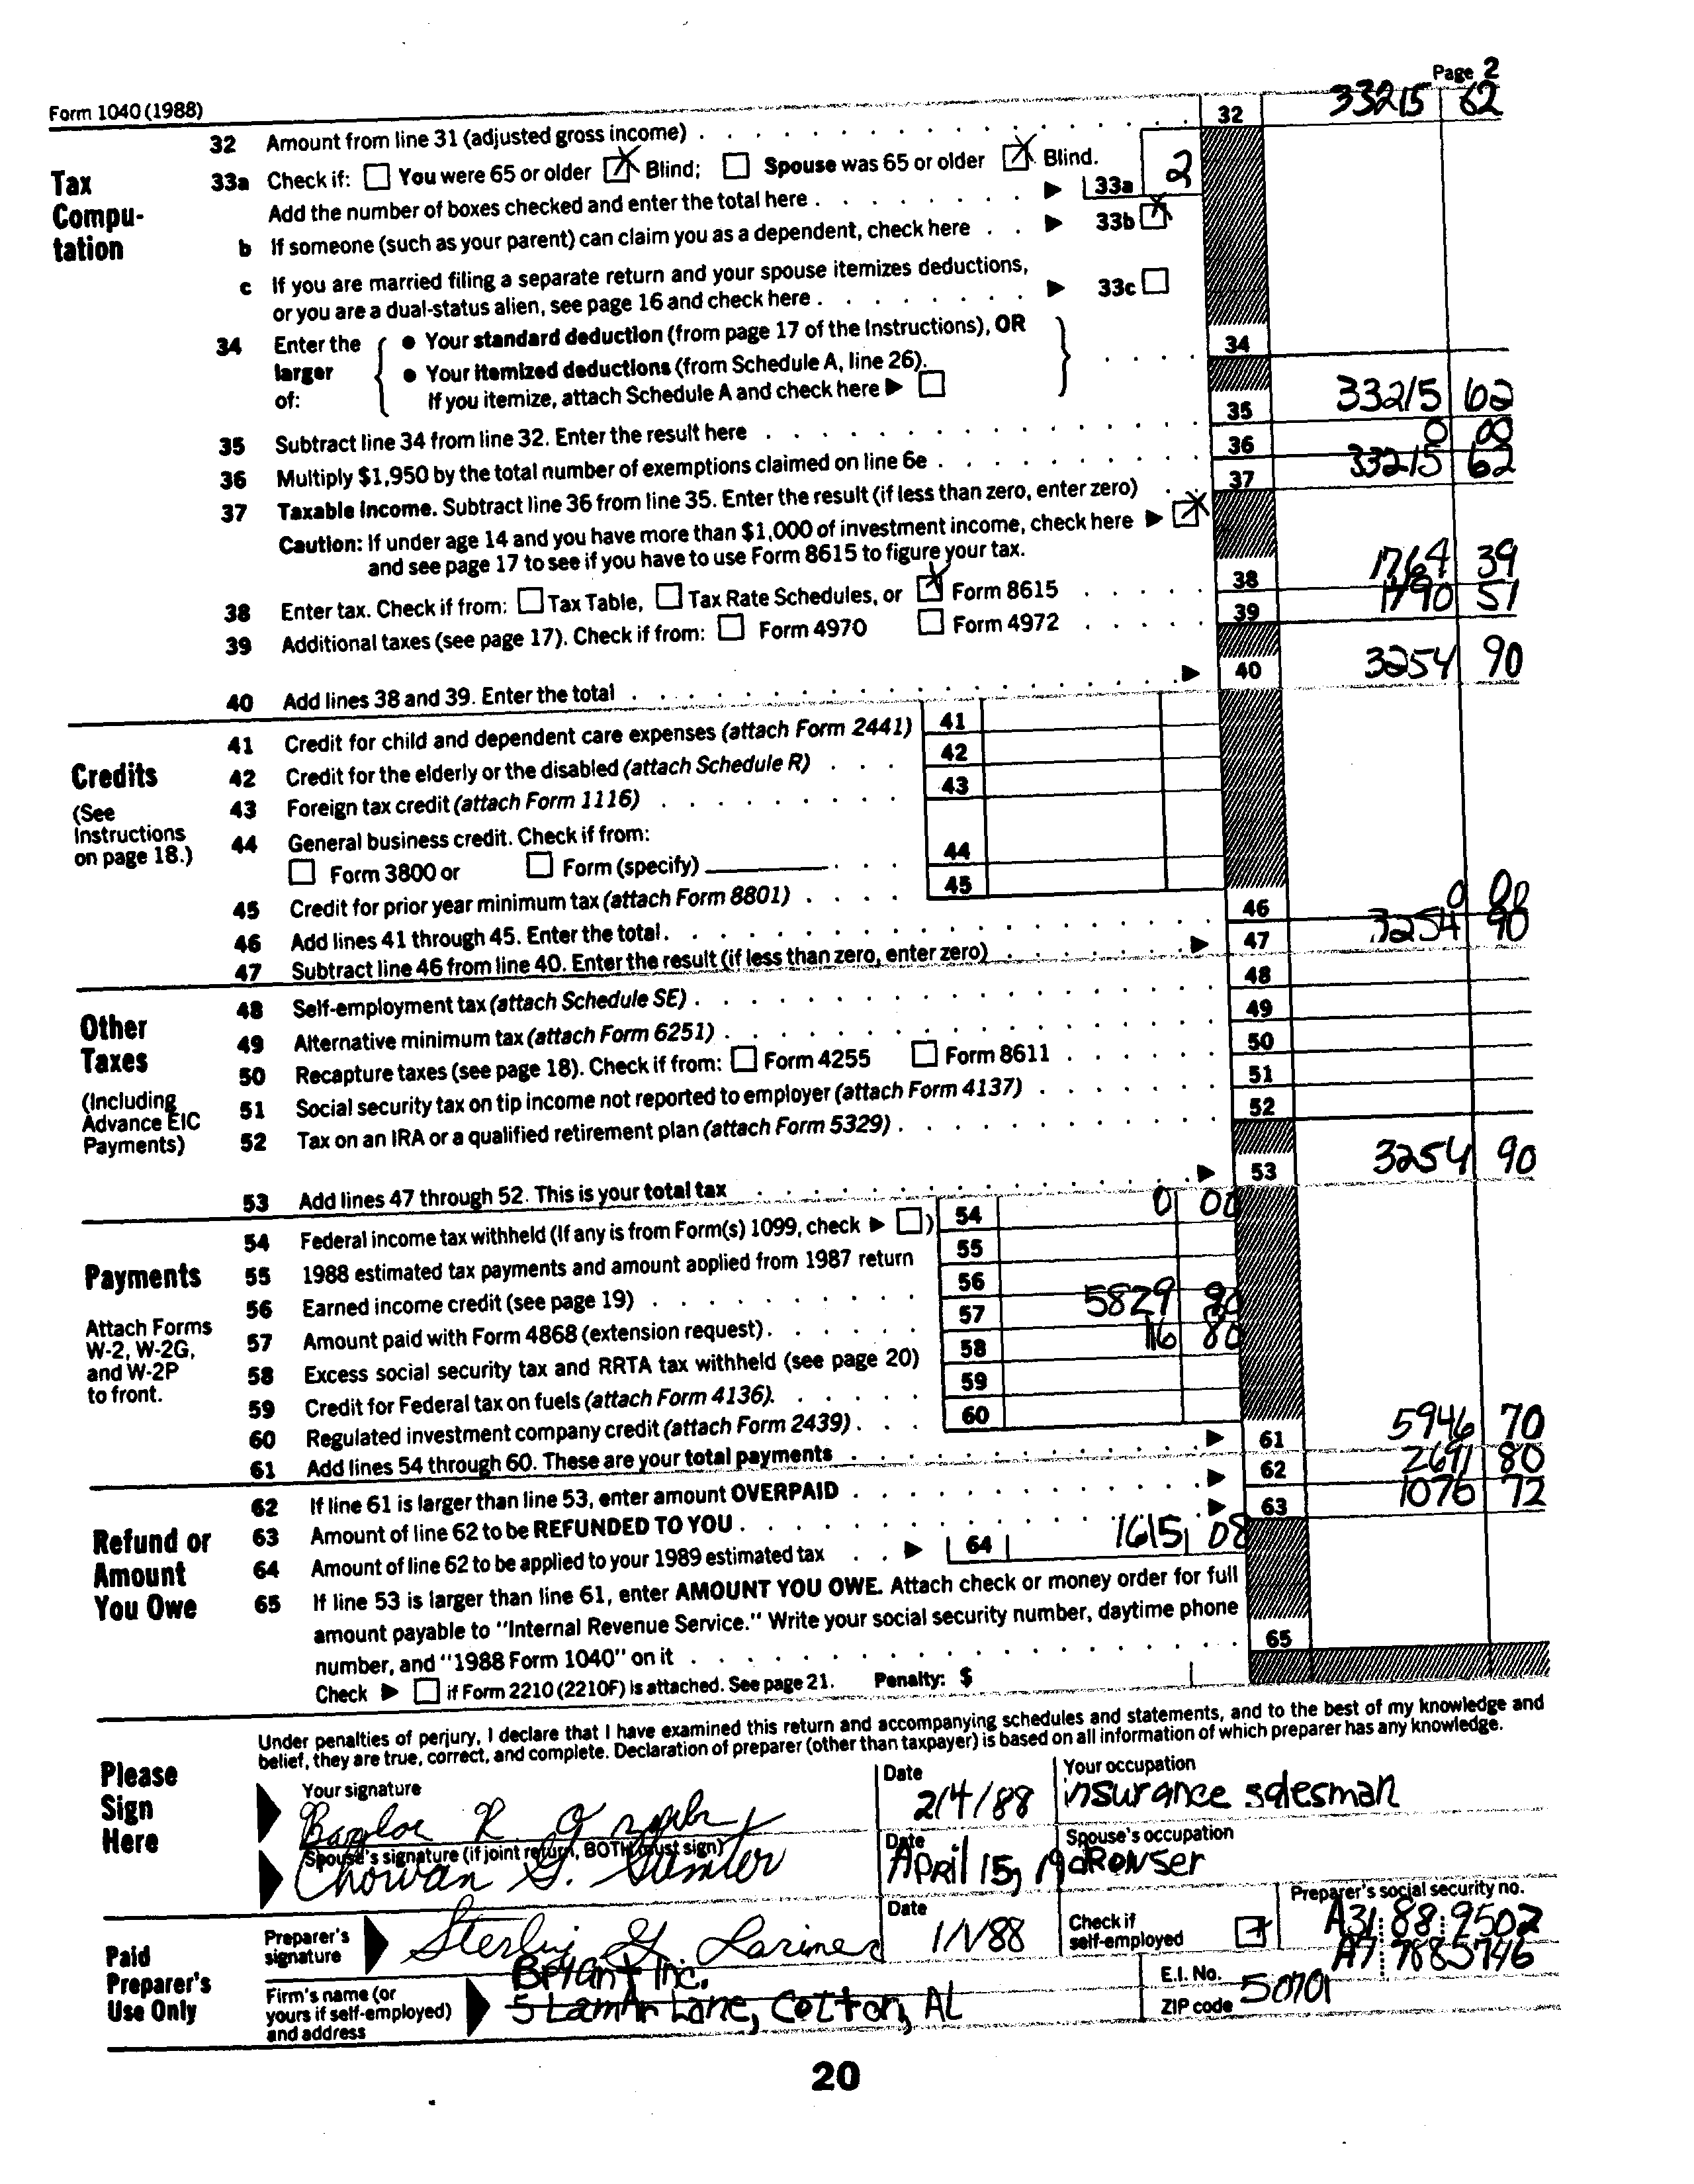 Form 1040 (1988) Page 2
32 Amount from line 31 (adjusted gross income) 32 33215 62
Tax Compu-tation
33a Check if: You were 65 or older X Blind; Spouse was 65 or older X Blind.
Add the number of boxes checked and enter the total here 33a 2
b If someone (such as your parent) can claim you as a dependent, check here 33b X
c If you are married filing a separate return and your spouse itemizes deductions,
or you are a dual-status alien, see page 16 and check here 33c
34 Enter the larger of: • Your standard deduction (from page 17 of the Instructions), OR 34
• Your itemized deductions (from Schedule A, line 26).
If you itemize, attach Schedule A and check here
35 Subtract line 34 from line 32. Enter the result here 35 33215 62
36 Multiply $1,950 by the total number of exemptions claimed on line 6e 36 0 00
37 Taxable income. Subtract line 36 from line 35. Enter the result (if less than zero, enter zero) 37 33215 62
Caution: If under age 14 and you have more than $1,000 of investment income, check here X
and see page 17 to see if you have to use Form 8615 to figure your tax.
38 Enter tax. Check if from: Tax Table, Tax Rate Schedules, or X Form 8615 38 1764 39
39 Additional taxes (see page 17). Check if from: Form 4970 Form 4972 39 1490 51
40 Add lines 38 and 39. Enter the total 40 3254 90
Credits
(See Instructions on page 18.)
41 Credit for child and dependent care expenses (attach Form 2441) 41
42 Credit for the elderly or the disabled (attach Schedule R) 42
43 Foreign tax credit (attach Form 1116) 43
44 General business credit. Check if from:
Form 3800 or Form (specify) 44
45 Credit for prior year minimum tax (attach Form 8801) 45
46 Add lines 41 through 45. Enter the total 46 0 00
47 Subtract line 46 from line 40. Enter the result (if less than zero, enter zero) 47 3254 90
Other Taxes
(Including Advance EIC Payments)
48 Self-employment tax (attach Schedule SE) 48
49 Alternative minimum tax (attach Form 6251) 49
50 Recapture taxes (see page 18). Check if from: Form 4255 Form 8611 50
51 Social security tax on tip income not reported to employer (attach Form 4137) 51
52 Tax on an IRA or a qualified retirement plan (attach Form 5329) 52
53 Add lines 47 through 52. This is your total tax 53 3254 90
Payments
Attach Forms W-2, W-2G, and W-2P to front.
54 Federal income tax withheld (If any is from Form(s) 1099, check ) 54 0 00
55 1988 estimated tax payments and amount applied from 1987 return 55
56 Earned income credit (see page 19) 56
57 Amount paid with Form 4868 (extension request) 57 5829 90
58 Excess social security tax and RRTA tax withheld (see page 20) 58 116 80
59 Credit for Federal tax on fuels (attach Form 4136) 59
60 Regulated investment company credit (attach Form 2439) 60
61 Add lines 54 through 60. These are your total payments 61 5946 70
Refund or Amount You Owe
62 If line 61 is larger than line 53, enter amount OVERPAID 62 2691 80
63 Amount of line 62 to be REFUNDED TO YOU 63 1076 72
64 Amount of line 62 to be applied to your 1989 estimated tax 64 1615 08
65 If line 53 is larger than line 61, enter AMOUNT YOU OWE. Attach check or money order for full
amount payable to "Internal Revenue Service." Write your social security number, daytime phone
number, and "1988 Form 1040" on it 65
Check if Form 2210 (2210F) is attached. See page 21. Penalty: $
Please Sign Here
Under penalties of perjury, I declare that I have examined this return and accompanying schedules and statements, and to the best of my knowledge and
belief, they are true, correct, and complete. Declaration of preparer (other than taxpayer) is based on all information of which preparer has any knowledge.
Your signature Date Your occupation
Baylor R 2/4/88 insurance salesman
Spouse's signature (if joint return, BOTH must sign) Date Spouse's occupation
Chowan G. Sumter April 15,
Paid Preparer's Use Only
Preparer's signature Sterlin G Larimer Date 1/1/88 Check if self-employed X Preparer's social security no. A31 88 9502
Firm's name (or yours if self-employed) and address Briant Inc. E.I. No. A7 7885746
5 Lamar Lane, Cotton, AL ZIP code 50701
20